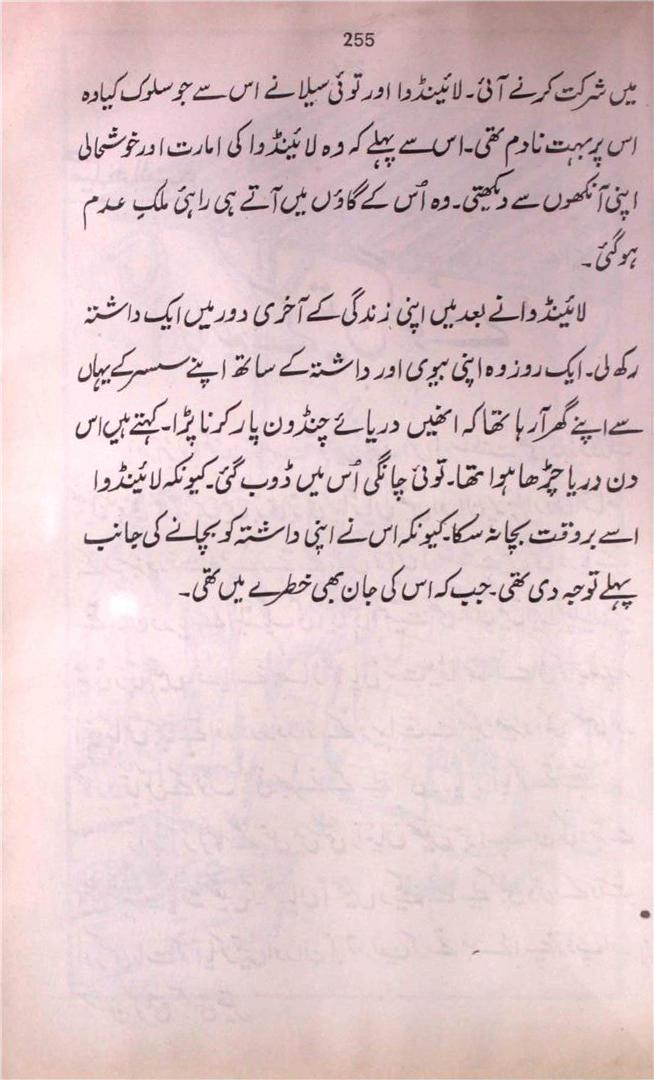 255
میں شرکت کرنے آئی۔ لائینڈوا اور توئی سیلا نے اس سے جو سلوک کیا وہ
اس پر بہت نادم تھی۔ اس سے پہلے کہ وہ لائینڈوا کی امارت اور خوشحالی
اپنی آنکھوں سے دیکھتی۔ وہ اُس کے گاؤں میں آتے ہی راہیٔ ملکِ عدم
ہوگئی۔
لائینڈوا نے بعد میں اپنی زندگی کے آخری دور میں ایک داشتہ
رکھ لی۔ ایک روز وہ اپنی بیوی اور داشتہ کے ساتھ اپنے سسر کے یہاں
سے اپنے گھر آ رہا تھا کہ انھیں دریائے چنڈون پار کرنا پڑا۔ کہتے ہیں اس
دن دریا چڑھا ہوا تھا۔ توئی چانگی اُس میں ڈوب گئی۔ کیونکہ لائینڈوا
اسے بروقت بچا نہ سکا۔ کیونکہ اس نے اپنی داشتہ کو بچانے کی جانب
پہلے توجہ دی تھی۔ جب کہ اس کی جان بھی خطرے میں تھی۔